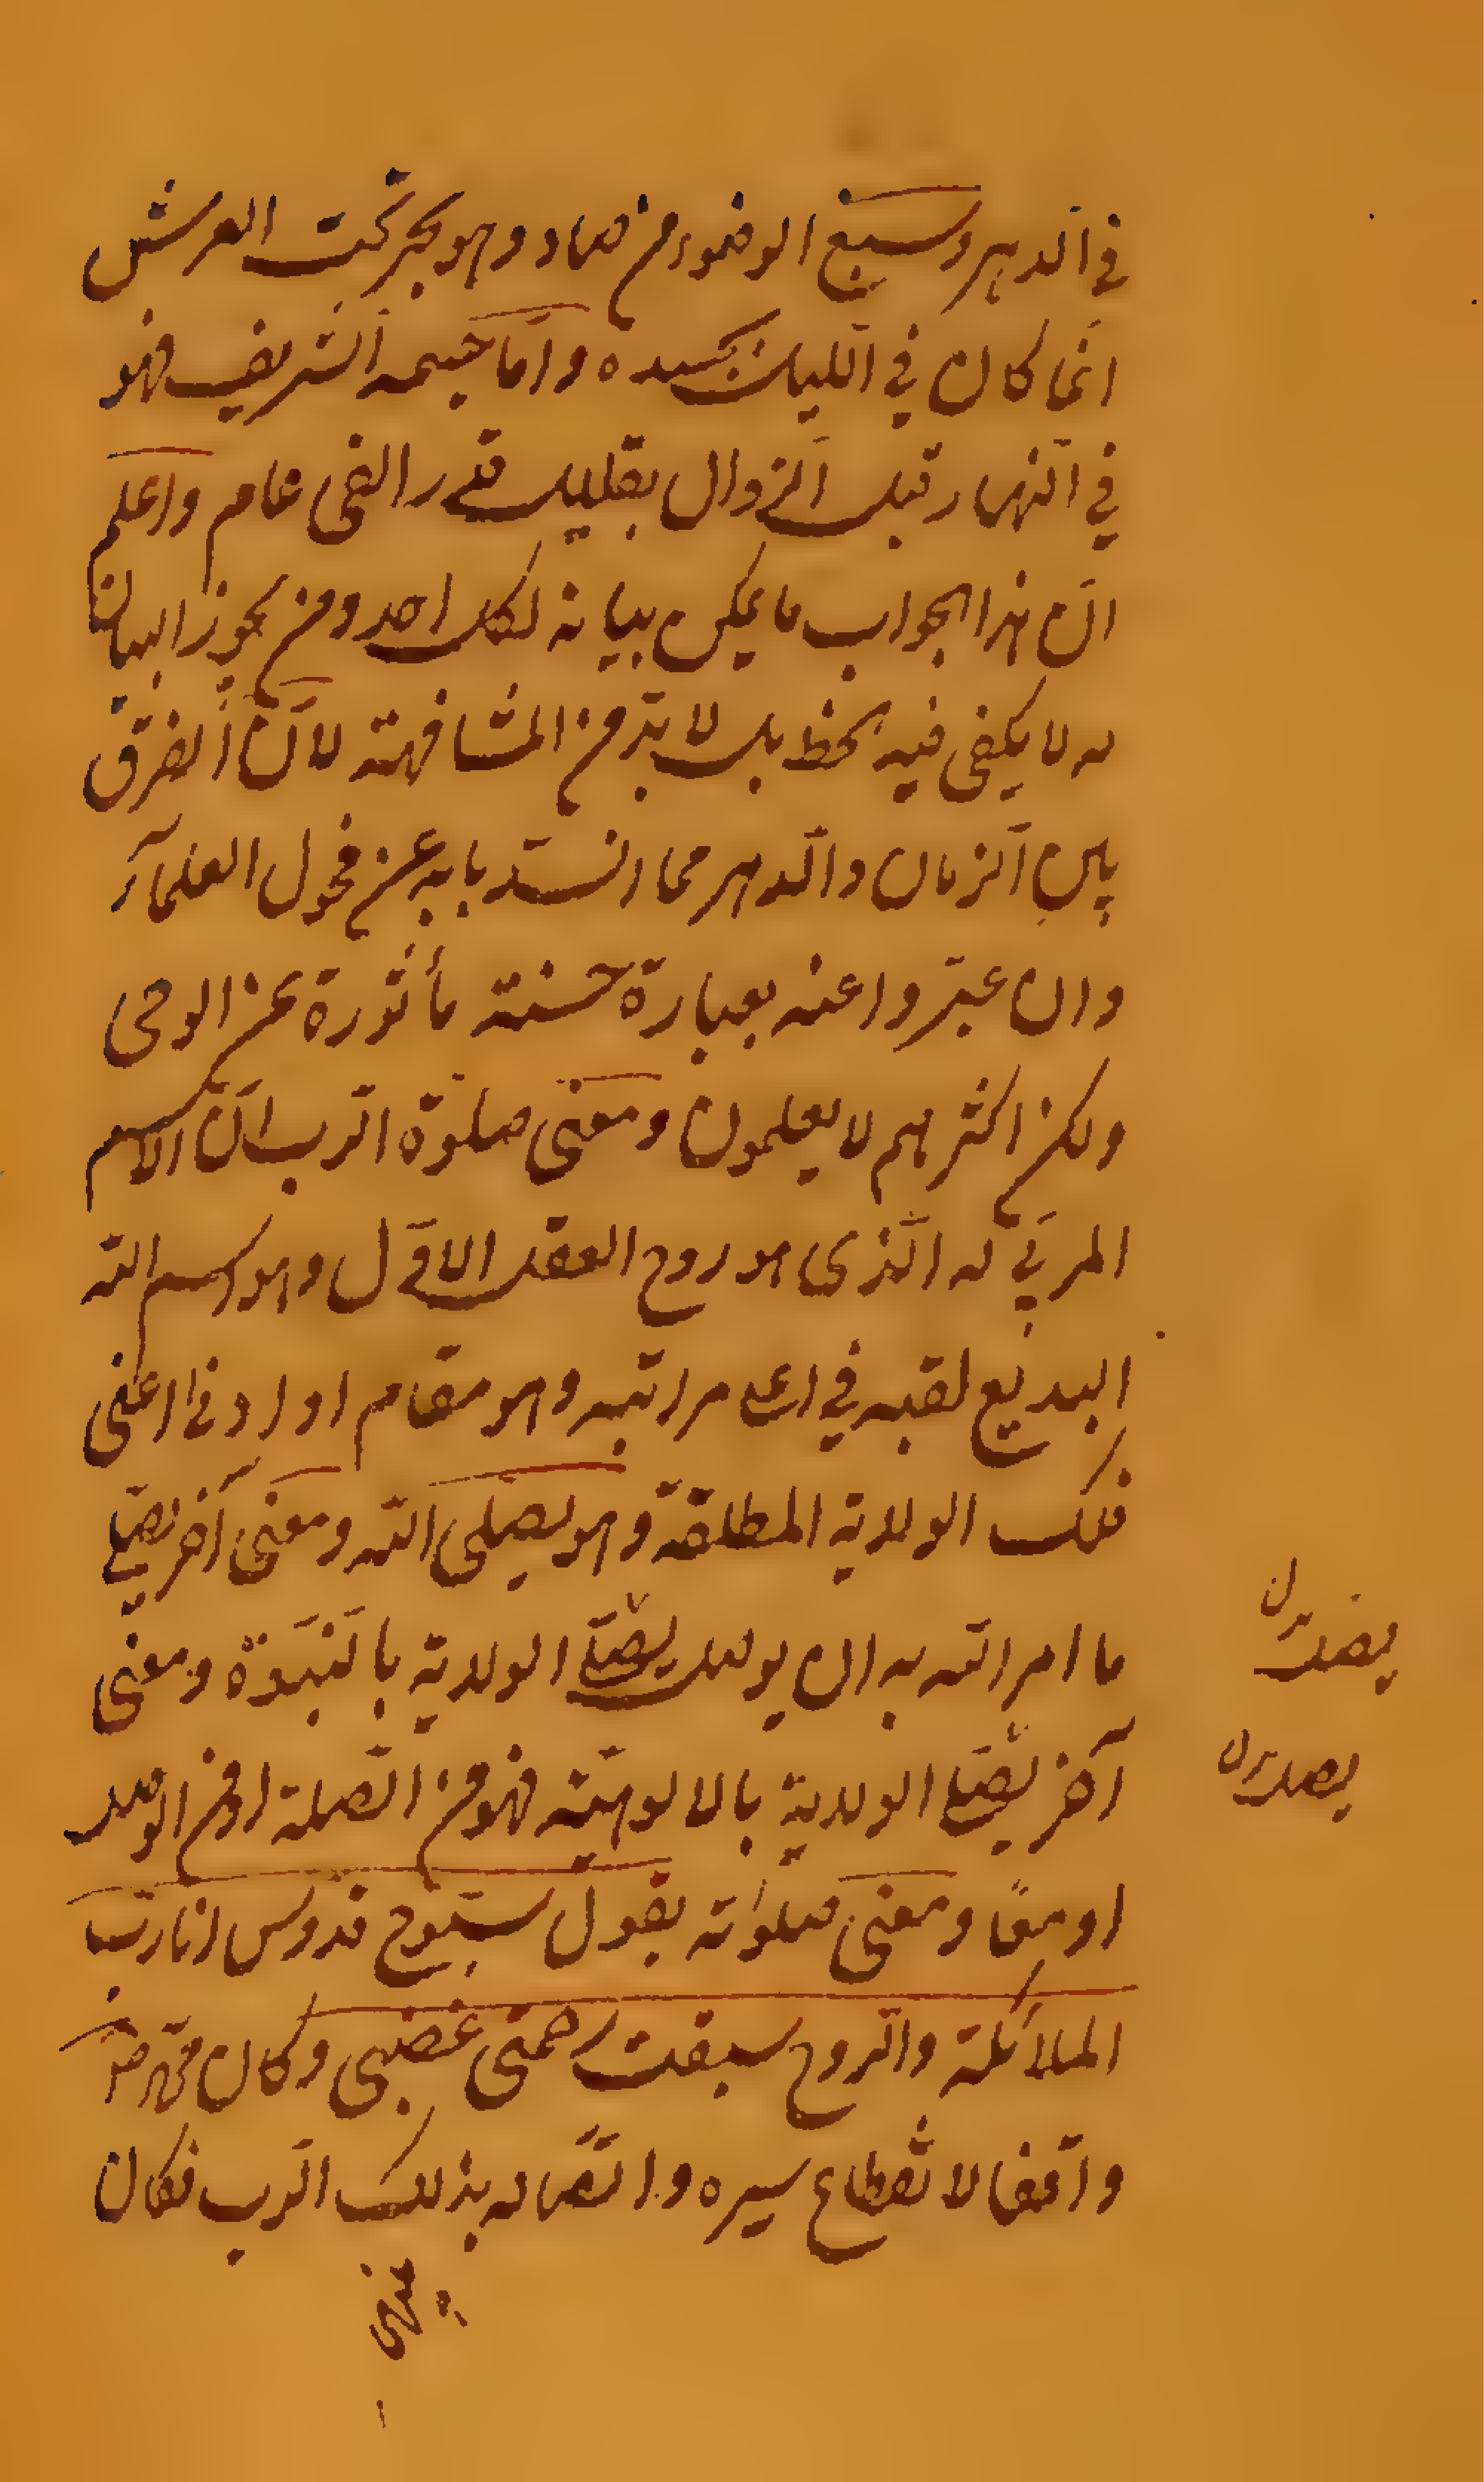 في الدهر وسبغ الوضوء من صاد وهو بحر تحت العرش
انما كان في الليل بجسده واما جسمه الشريف فهو
في النهار قبل الزوال بقليل قدر الفى عام واعلم
ان هذا الجواب ما يمكن بيانه لكل احد ومن يجوز البيان
له لا يكفى فيه الخط بل لا بد من المشافهة لان الفرق
بين الزمان والدهر مما انسد بابه عن فحول العلماء
وان عبروا عنه بعبارة حسنة مأثورة عن الوحى
ولكن اكثرهم لا يعلمون ومعنى صلوة الرب ان الاسم
المربي له الذى هو روح العقل الاول وهو اسم الله
البديع لقبه في اعلى مراتبه وهو مقام او ادنى اعنى
فلك الولاية المطلقة وهو يصلى الله ومعنى آخر يصل
ما امر الله به ان يوصل يصل الولاية بالنبوة ومعنى
آخر يصل الولاية بالالوهية فهو من الصلة او من الوصل
او معًا ومعنى صلواته يقول سبوح قدوس انا رب
الملائكة والروح سبقت رحمتى غضبى وكان محمد ص
واقفا لانقطاع سيره واتصاله بذلك الرب فكان
يصل ن
يصل ن